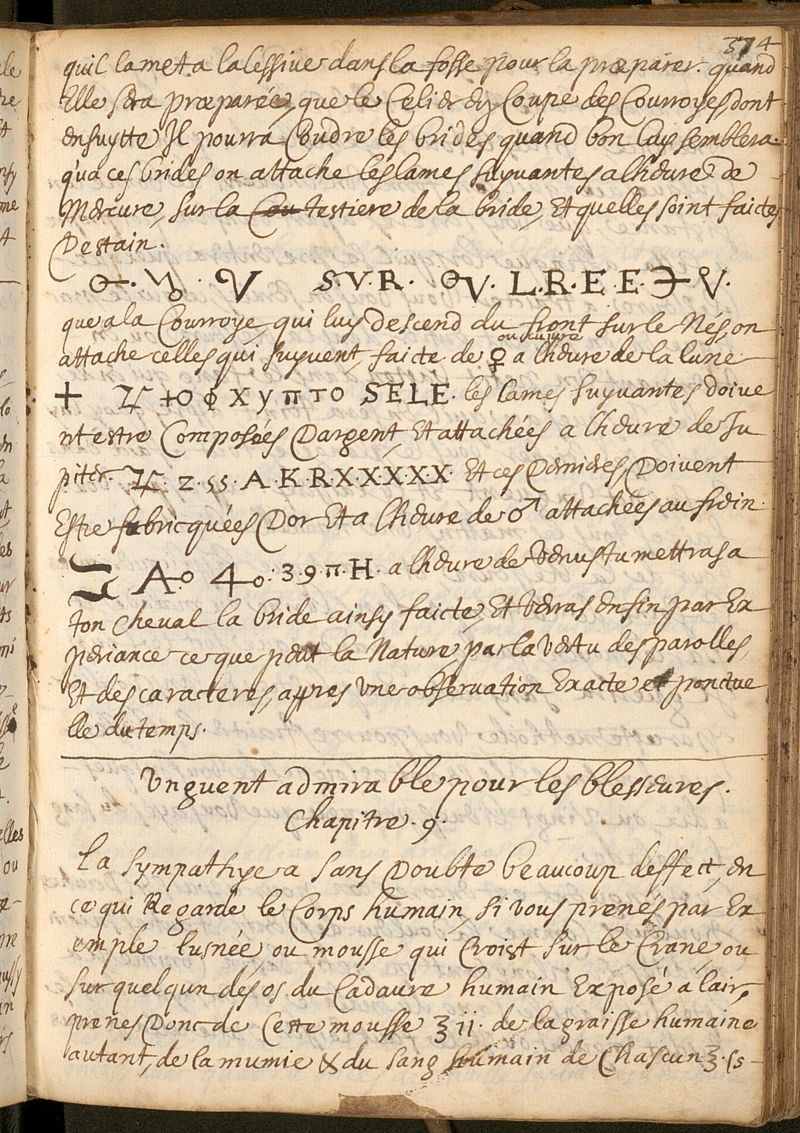 574
quil la met a la lessive dans la fosse pour la præparer. quand
Elle sera præparée, que le Celier en Coupe des Courroyes, dont
ensuytte Jl pourra Coudre les brides quand bon luy semblera.
qua ces brides on attache les lames suyvantes a lheure de
Mercure, sur la testiere de la bride, Et quelles soint faictes
Destain.
S.V.R. L.R.E.E.
que a la Courroye qui luy descend du front sur le Nés, on
ou cuivre
attache celles qui suyvent, faicte de ♀ a lheure de la lune
+ ϕ X y π τ o SELE. les lames suyvantes doive
nt estre Composées Dargent, Et attachées a lheure de Ju
piter. Z. ss. A.K.R.X.X.X.X.X. Et ces Dernieres Doivent
Estre fabricquées Dor Et a lheure de ♂ attachées au frein.
3.9.π.H. a lheure de Venus tu mettras a
ton cheval la bride ainsy faicte, Et verras Ensin par Ex
periance ce que peut la Nature, par la vertu des parolles,
Et des caracteres, appres vne observation Exacte et ponctue
lle du temps.
Vnguent admirable pour les blesseures.
Chapitre .9.
La sympathye a sans Doubte beaucoup deffect, en
ce qui Regarde le Corps humain, si vous prenés par Ex
emple lusnée, ou mousse qui Croist sur le Crane ou
sur quelqun des os du Cadavre humain Exposé a lair,
prenes Donc de Cette mousse ʒ ii. de la graisse humaine
autant, de la mumie & du sang humain de Chascun ʒ. ſs